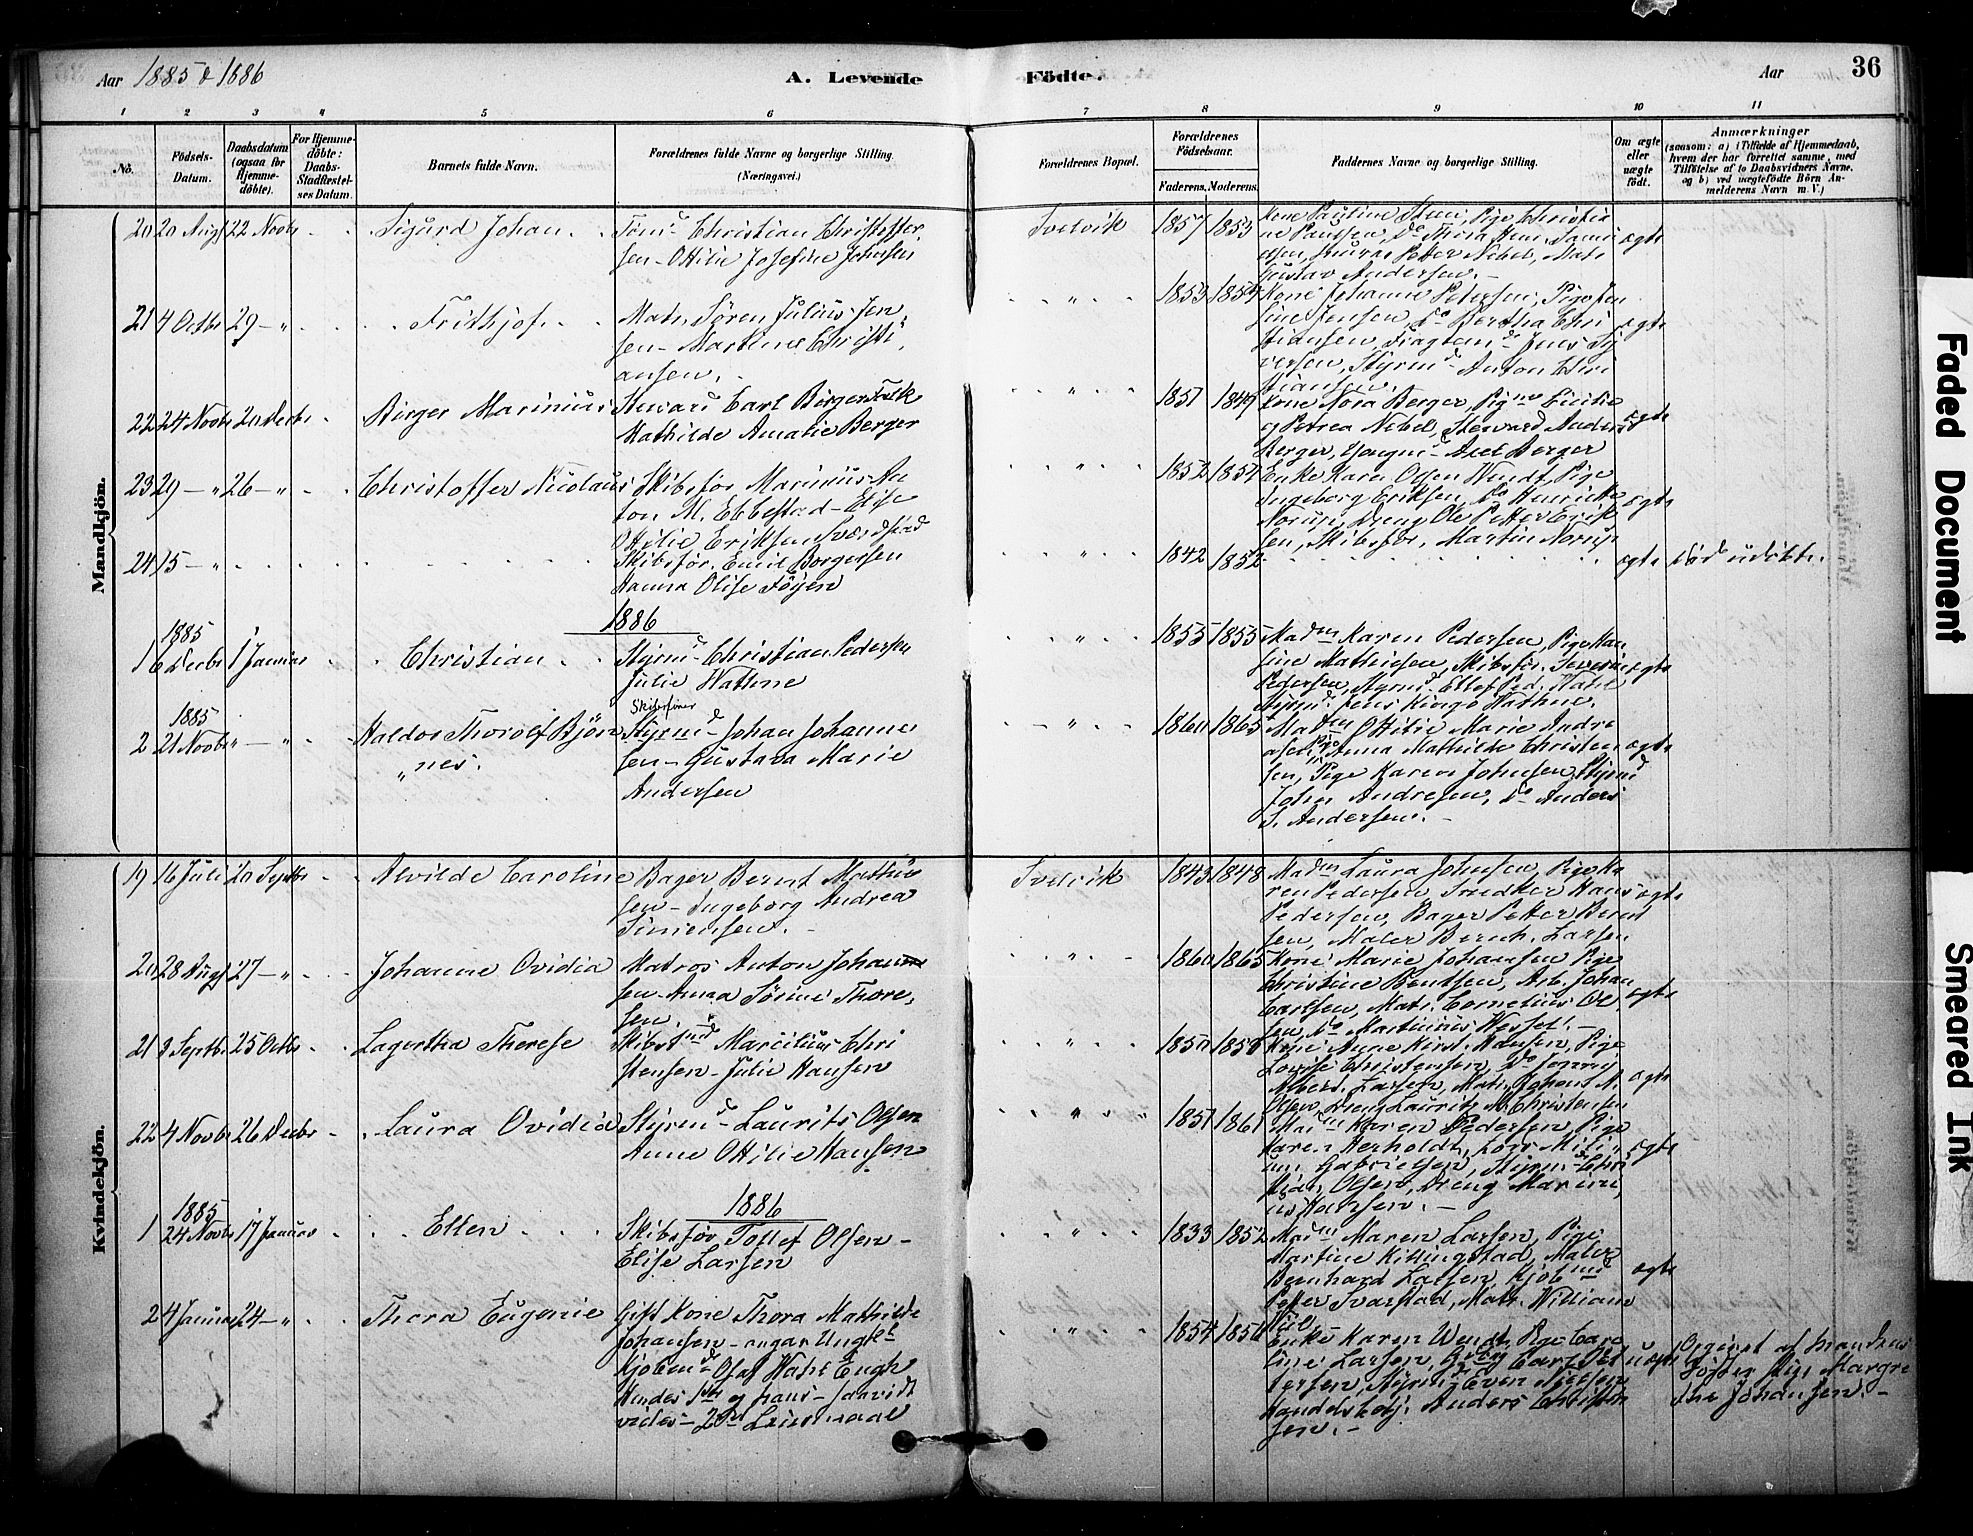 Aar 1885 & 1886
A. Levende Födte.
Aar
36
1 2 3 4 5 6 7 8 9 10 11
No.
Födsels-Datum.
Daabsdatum (ogsaa for Hjemme-döbte).
For Hjemme-döbte: Daabs-Stadfæstel-ses Datum.
Barnets fulde Navn.
Forældrenes fulde Navne og borgerlige Stilling.
(Næringsvei.)
Forældrenes Bopæl.
Forældrenes Födselsaar.
Faderens. Moderens.
Faddernes Navne og borgerlige Stilling.
Om ægte eller uægte födt.
Anmærkninger
(saasom: a) i Tilfælde af Hjemmedaab,
hvem der har forrettet samme, med
Tilföielse af to Daabsvidners Navne,
og b) ved uægtefödte Börn An-
melderens Navn m. V.)
Mandkjön.
20 20 Augst 22 Novbr Sigurd Johan
Christian Christoffer
sen - Ottilie Josefine Johansen
Svelvik 1857 1853
Kone Pauline Steen, Pige Christia
ne Paulsen,
Petter Nebel, Matr
Gustav Andersen.
ægte
21 4 Octbr 29 - " Frithjof
Matr. Sören Julius Jen
sen - Martine Christi
ansen.
" 1853 1854
Kone Johanne Petersen, Pige Jen
sine Jensen, do Bertha Chri
stiansen, Fragtemd Jens Sy
versen, Styrmd Anton Chri
stiansen.
ægte
22 24 Novbr 20 Decbr Birger Marinius
Steward Carl Börger Falk
Mathilde Amalie Berger
" 1851 1849
Kone Nora Berger, Pigne Cicilie
og Petrea Nebel, Steward Anders
Berger, Ungm Axel Berger
ægte
23 29 - " 26 - " Christoffer Nicolaus
Skibsför Marinius An
ton M. Ebbestad - Elise
Otilie Eriksen Sværdstad
" 1852 1857
Enke Karen Olsen Wendt, Pige
Ingeborg Eriksen, do Henrikke
Norup, Dreng Ole Petter Erik
sen, Skibsför. Martin Norup
ægte
24 15 - "
Skibsför. Emil Borgersen
Hanna Olise Föyen
" 1842 1852
ægte
död udöbt.
1886
1885
1 6 Decbr 1 Januar Christian
Styrmd Christian Pedersen
Julie Wathne
" 1855 1855
Madm Karen Pedersen, Pige Han
sine Mathiesen, Skibsför. Severin
Pedersen, Styrmd. Ellef Ped. Wahl
Styrmd. Jens Kingo Wathne.
ægte
1885
2 21 Novbr " - " Haldor Thorolf Bjön
" nes.
Skibsförer
Styrmd Johan Johanne
sen - Gustava Marie
Andersen
" 1860 1865
Madm Ottilie Marie Andre
asen, Pige Anna Mathilde Christen
sen, Pige Karen Johnsen, Styrmd
John Andresen, do Anders
S. Andersen.
ægte
Kvindekjön.
19 16 Juli 20 Septbr Alvilde Caroline
Bager Bernt Mathie
sen - Ingeborg Andrea
Simensen.
Svelvik 1843 1848
Madm Laura Johnsen, Pige Ka
ren Pedersen Snedker Hans
Pedersen, Bager Petter Bernt
sen, Maler Bernh. Larsen
ægte
20 28 Augst 27 - " Johanne Ovidia
Matros Anton Johan
sen - Anna Sörine Thore
sen.
" 1860 1865
Kone Marie Johansen Pige
Christine Bentsen, Arb. Johan
Carlsen, Matr. Cornelius Ol
sen, do Martinius Wessel.
ægte
21 3 Septbr 25 Octbr Lagertha Therese
Marcilius Chri
stensen - Julie Hansen
" 1850 1858
Kone Anne Kirst. Hansen, Pige
Lovise Christensen,
Larsen, Matr. Johan M.
Olsen, Dreng Laurits M. Christensen
ægte
22 4 Novbr 26 Decbr Laura Ovidia
Styrmd Laurits Olsen
Anne Ottilie Hansen
" 1857 1861
Madm Karen Pedersen, Pige
Karen Herholdt,
Gabrielsen, Styrm. Chri
Olsen, Dreng Marini
us Hansen.
ægte
1886
1885
1 24 Novbr 17 Januar Ellen
Skibsför Tollef Olsen -
Elise Larsen
" 1833 1852
Madm Maren Larsen, Pige
Martine Killingstad, Maler
Bernhard Larsen, Kjöbmd
Petter Svarstad, Matr. William
ægte
2 4 Januar 24 - " Thora Eugenie
Gift Kone Thora Mathilde
Johansen - angav Ungk.
Kjöbmd Olaf Wahl Engh
Hendes 1ste og hans - saavidt
vides - 2det Leiermaal
" 1854 1856
Enke Karen Wendt, Pige Caro
line Larsen, Carl Pet
tersen, Styrmd Even Nielsen
Handelsbetj. Anders Christen
sen.
uægte
Opgivet af Mandens
Söster Pige Margre
the Johansen.
Faded Document
Smeared Ink